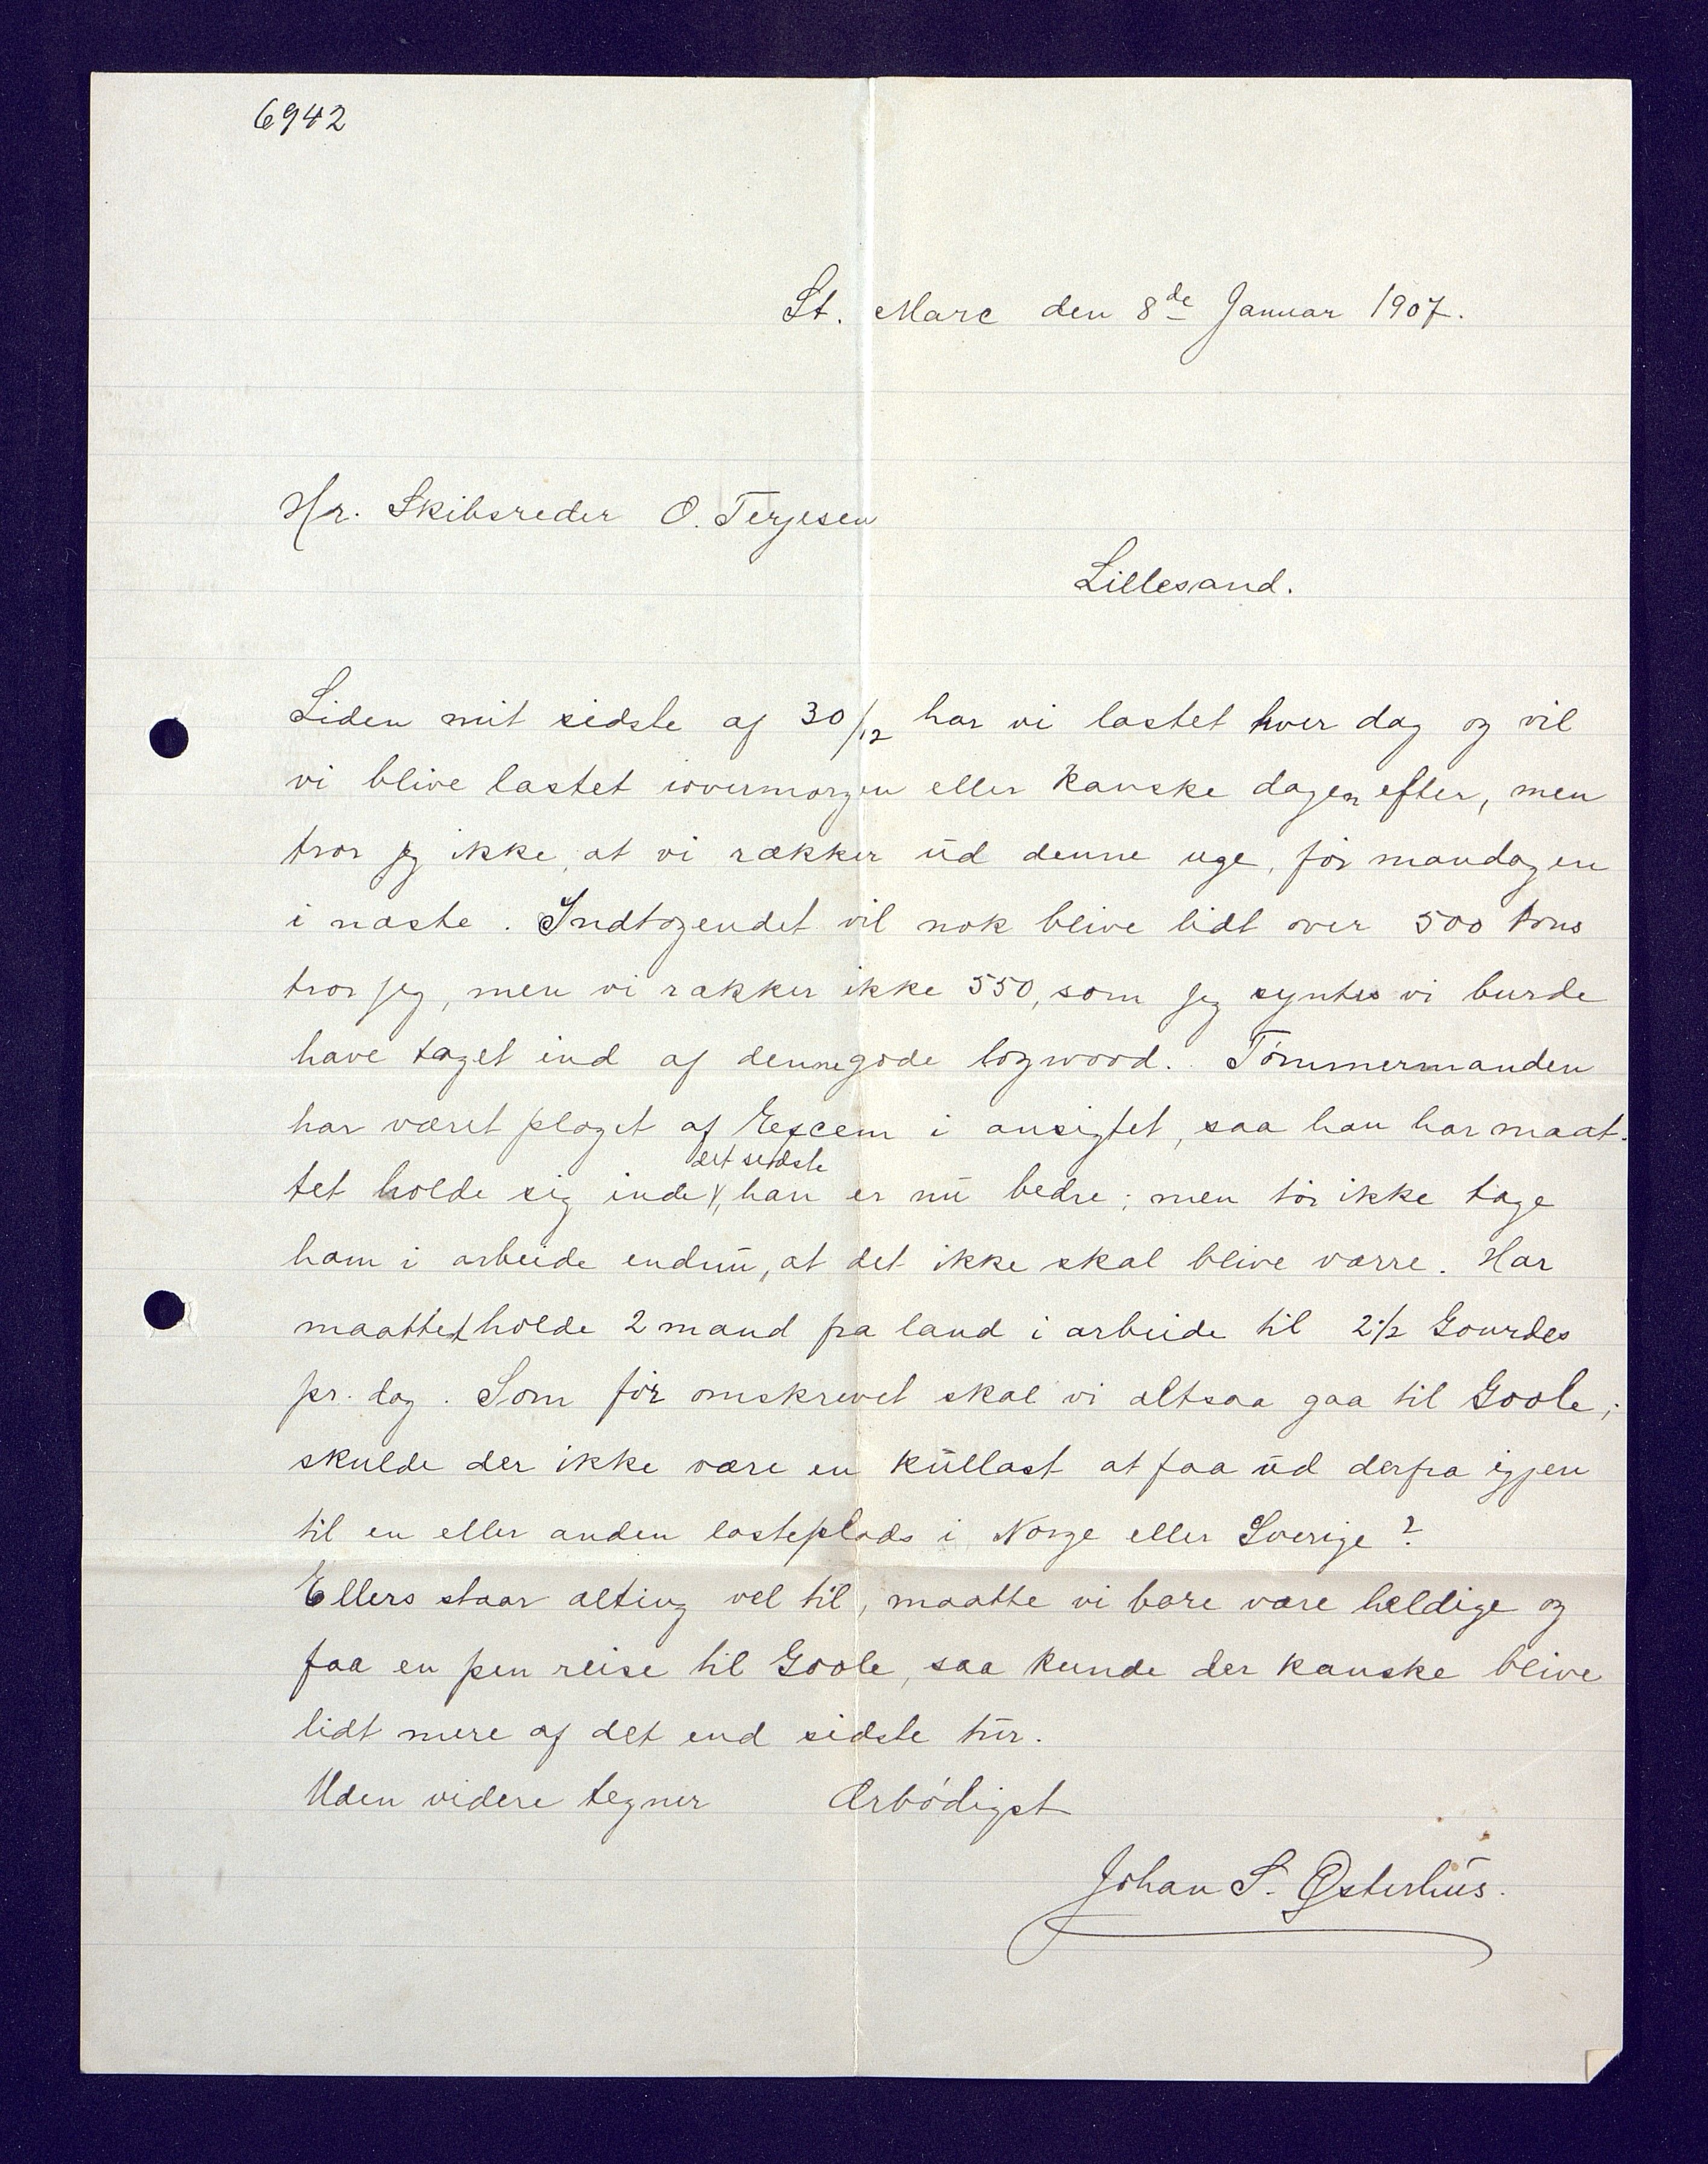 6942
St. Marc den 8de Januar 1907.
Hr. Skibsreder O. Terjesen
Lillesand.
Siden mit sidste af 30/12 har vi lastet hver dag og vil
vi blive lastet iovermorgen eller kanske dagen efter, men
tror jeg ikke, at vi rækker ud denne uge, før mandagen
i næste. Indtagendet vil nok blive lidt over 500 tons
tror jeg, men vi rækker ikke 550, som jeg syntes vi burde
have taget ind af denne gode logwood. Tømmermanden
har været plaget af Exccem i ansigtet, saa han har maat-
tet holde sig inde det sidste, han er nu bedre; men tør ikke tage
ham i arbeide endnu, at det ikke skal blive værre. Har
maattet holde 2 mand fra land i arbeide til 2 1/2 Gourdes
pr. dag. Som før omskrevet skal vi altsaa gaa til Goole;
skulde der ikke være en kullast at faa ud derfra igjen
til en eller anden lasteplads i Norge eller Sverige?
Ellers staar alting vel til, maatte vi bare være heldige og
faa en pen reise til Goole, saa kunde der kanske blive
lidt mere af det end sidste tur.
Uden videre tegner Ærbødigst
Johan S. Østerhus.